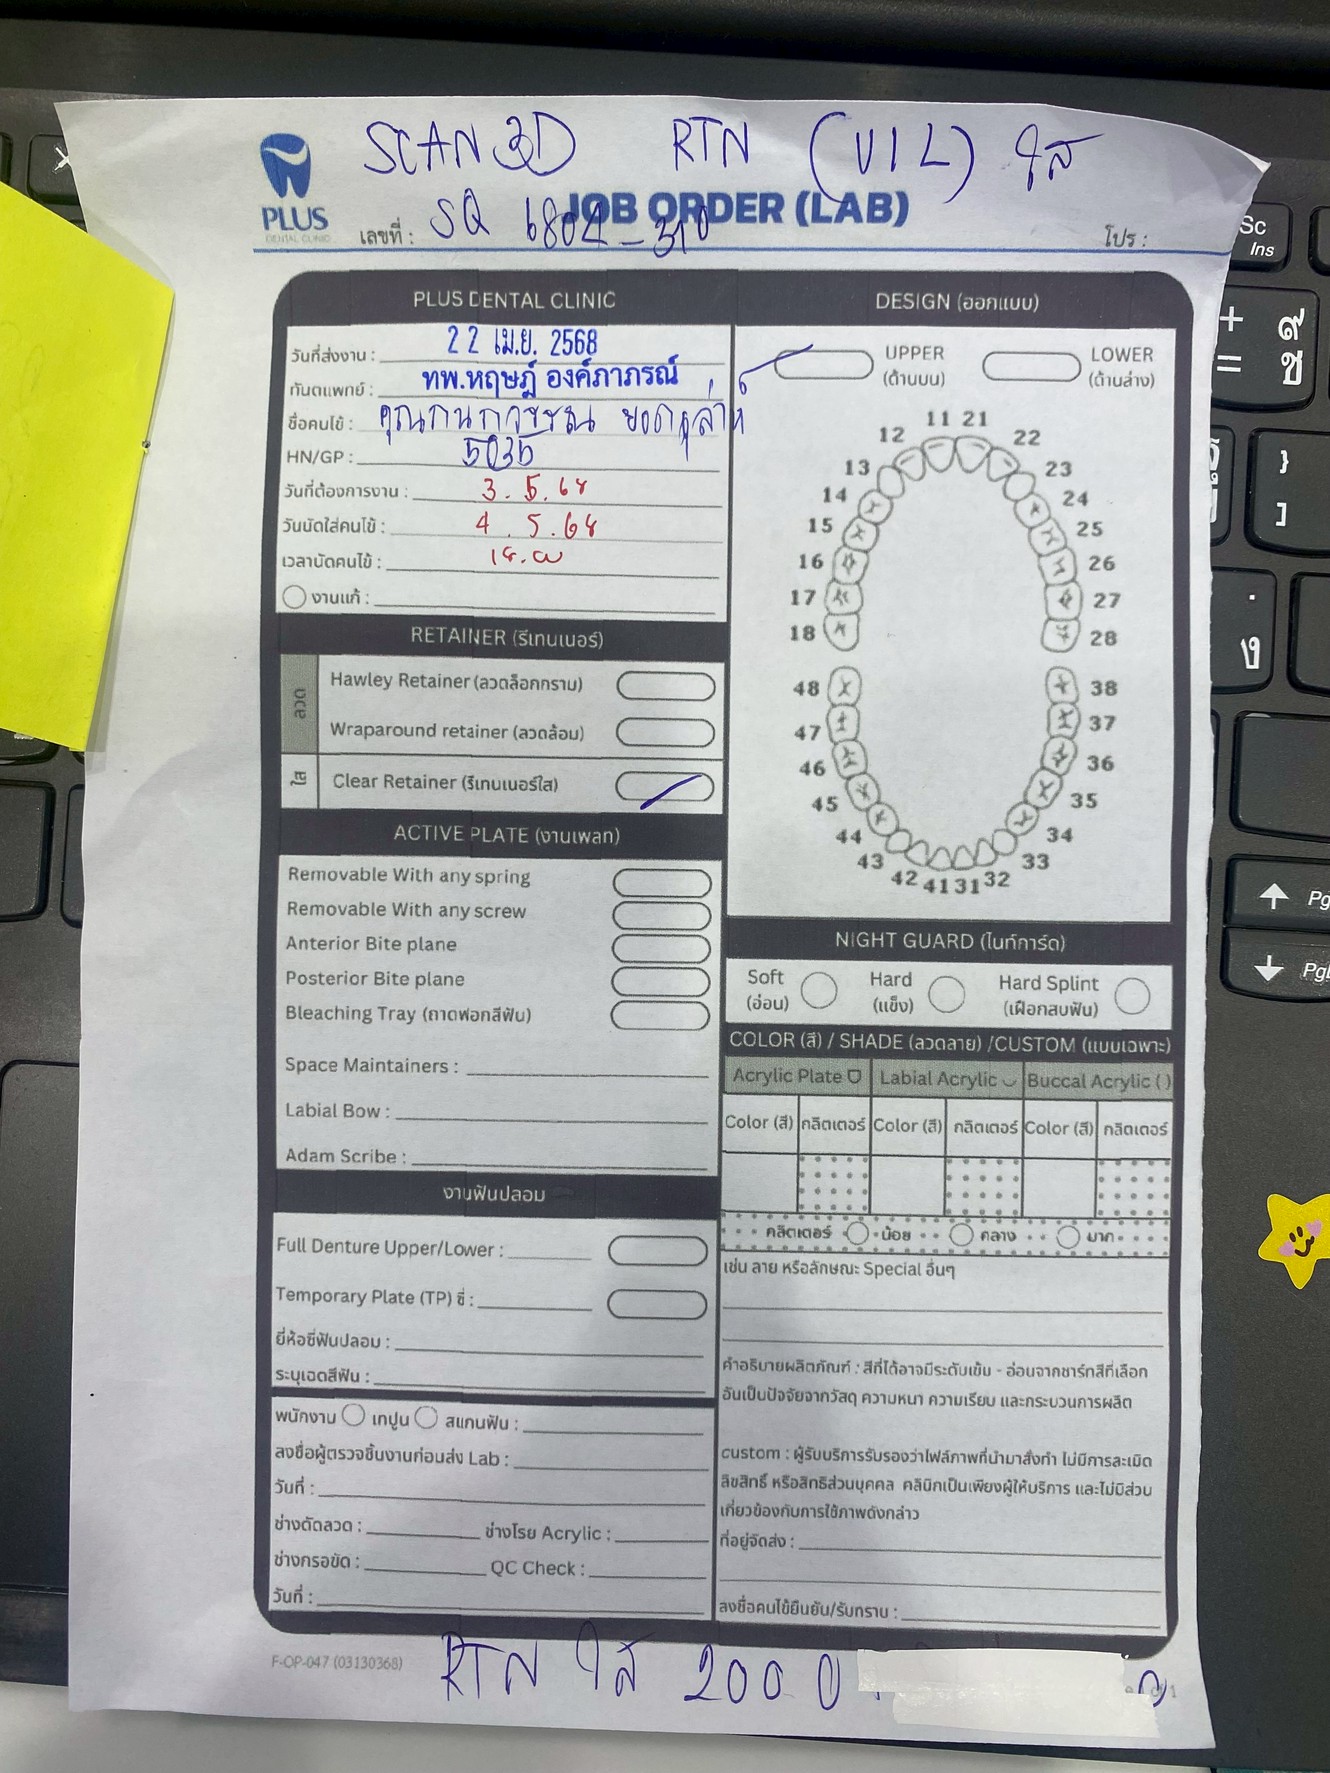 SCAN 3D RTN (U/L) ใส
PLUS
DENTAL CLINIC
JOB ORDER (LAB)
เลขที่ : SQ 6804-310
โปร :
PLUS DENTAL CLINIC
วันที่ส่งงาน : 22 เม.ย. 2568
ทันตแพทย์ : ทพ.หฤษฎ์ องค์ภาภรณ์
ชื่อคนไข้ :
HN/GP : 5035
วันที่ต้องการงาน : 3.5.68
วันนัดใส่คนไข้ : 4.5.68
เวลานัดคนไข้ : 18.00
งานแก้ :
RETAINER (รีเทนเนอร์)
ลวด
Hawley Retainer (ลวดล็อกกราม)
Wraparound retainer (ลวดล้อม)
ใส
Clear Retainer (รีเทนเนอร์ใส)
ACTIVE PLATE (งานเพลท)
Removable With any spring
Removable With any screw
Anterior Bite plane
Posterior Bite plane
Bleaching Tray (ถาดฟอกสีฟัน)
Space Maintainers :
Labial Bow :
Adam Scribe :
งานฟันปลอม
Full Denture Upper/Lower :
Temporary Plate (TP) ซี่ :
ยี่ห้อซี่ฟันปลอม :
ระบุเฉดสีฟัน :
พนักงาน เทปูน สแกนฟัน :
ลงชื่อผู้ตรวจชิ้นงานก่อนส่ง Lab :
วันที่ :
ช่างดัดลวด : ช่างโรย Acrylic :
ช่างกรอขัด : QC Check :
วันที่ :
DESIGN (ออกแบบ)
UPPER LOWER
(ด้านบน) (ด้านล่าง)
11 21
12 22
13 23
14 24
15 25
16 26
17 27
18 28
48 38
47 37
46 36
45 35
44 34
43 33
42 41 31 32
NIGHT GUARD (ไนท์การ์ด)
Soft Hard Hard Splint
(อ่อน) (แข็ง) (เฝือกสบฟัน)
COLOR (สี) / SHADE (ลวดลาย) /CUSTOM (แบบเฉพาะ)
Acrylic Plate Labial Acrylic Buccal Acrylic ( )
Color (สี) กลิตเตอร์ Color (สี) กลิตเตอร์ Color (สี) กลิตเตอร์
กลิตเตอร์ น้อย กลาง มาก
เช่น ลาย หรือลักษณะ Special อื่นๆ
คำอธิบายผลิตภัณฑ์ : สีที่ได้อาจมีระดับเข้ม - อ่อนจากชาร์ทสีที่เลือก
อันเป็นปัจจัยจากวัสดุ ความหนา ความเรียบ และกระบวนการผลิต
custom : ผู้รับบริการรับรองว่าไฟล์ภาพที่นำมาสั่งทำ ไม่มีการละเมิด
ลิขสิทธิ์ หรือสิทธิส่วนบุคคล คลินิกเป็นเพียงผู้ให้บริการ และไม่มีส่วน
เกี่ยวข้องกับการใช้ภาพดังกล่าว
ที่อยู่จัดส่ง :
ลงชื่อคนไข้ยืนยัน/รับทราบ :
F-OP-047 (03130368)
RTN ใส 2000